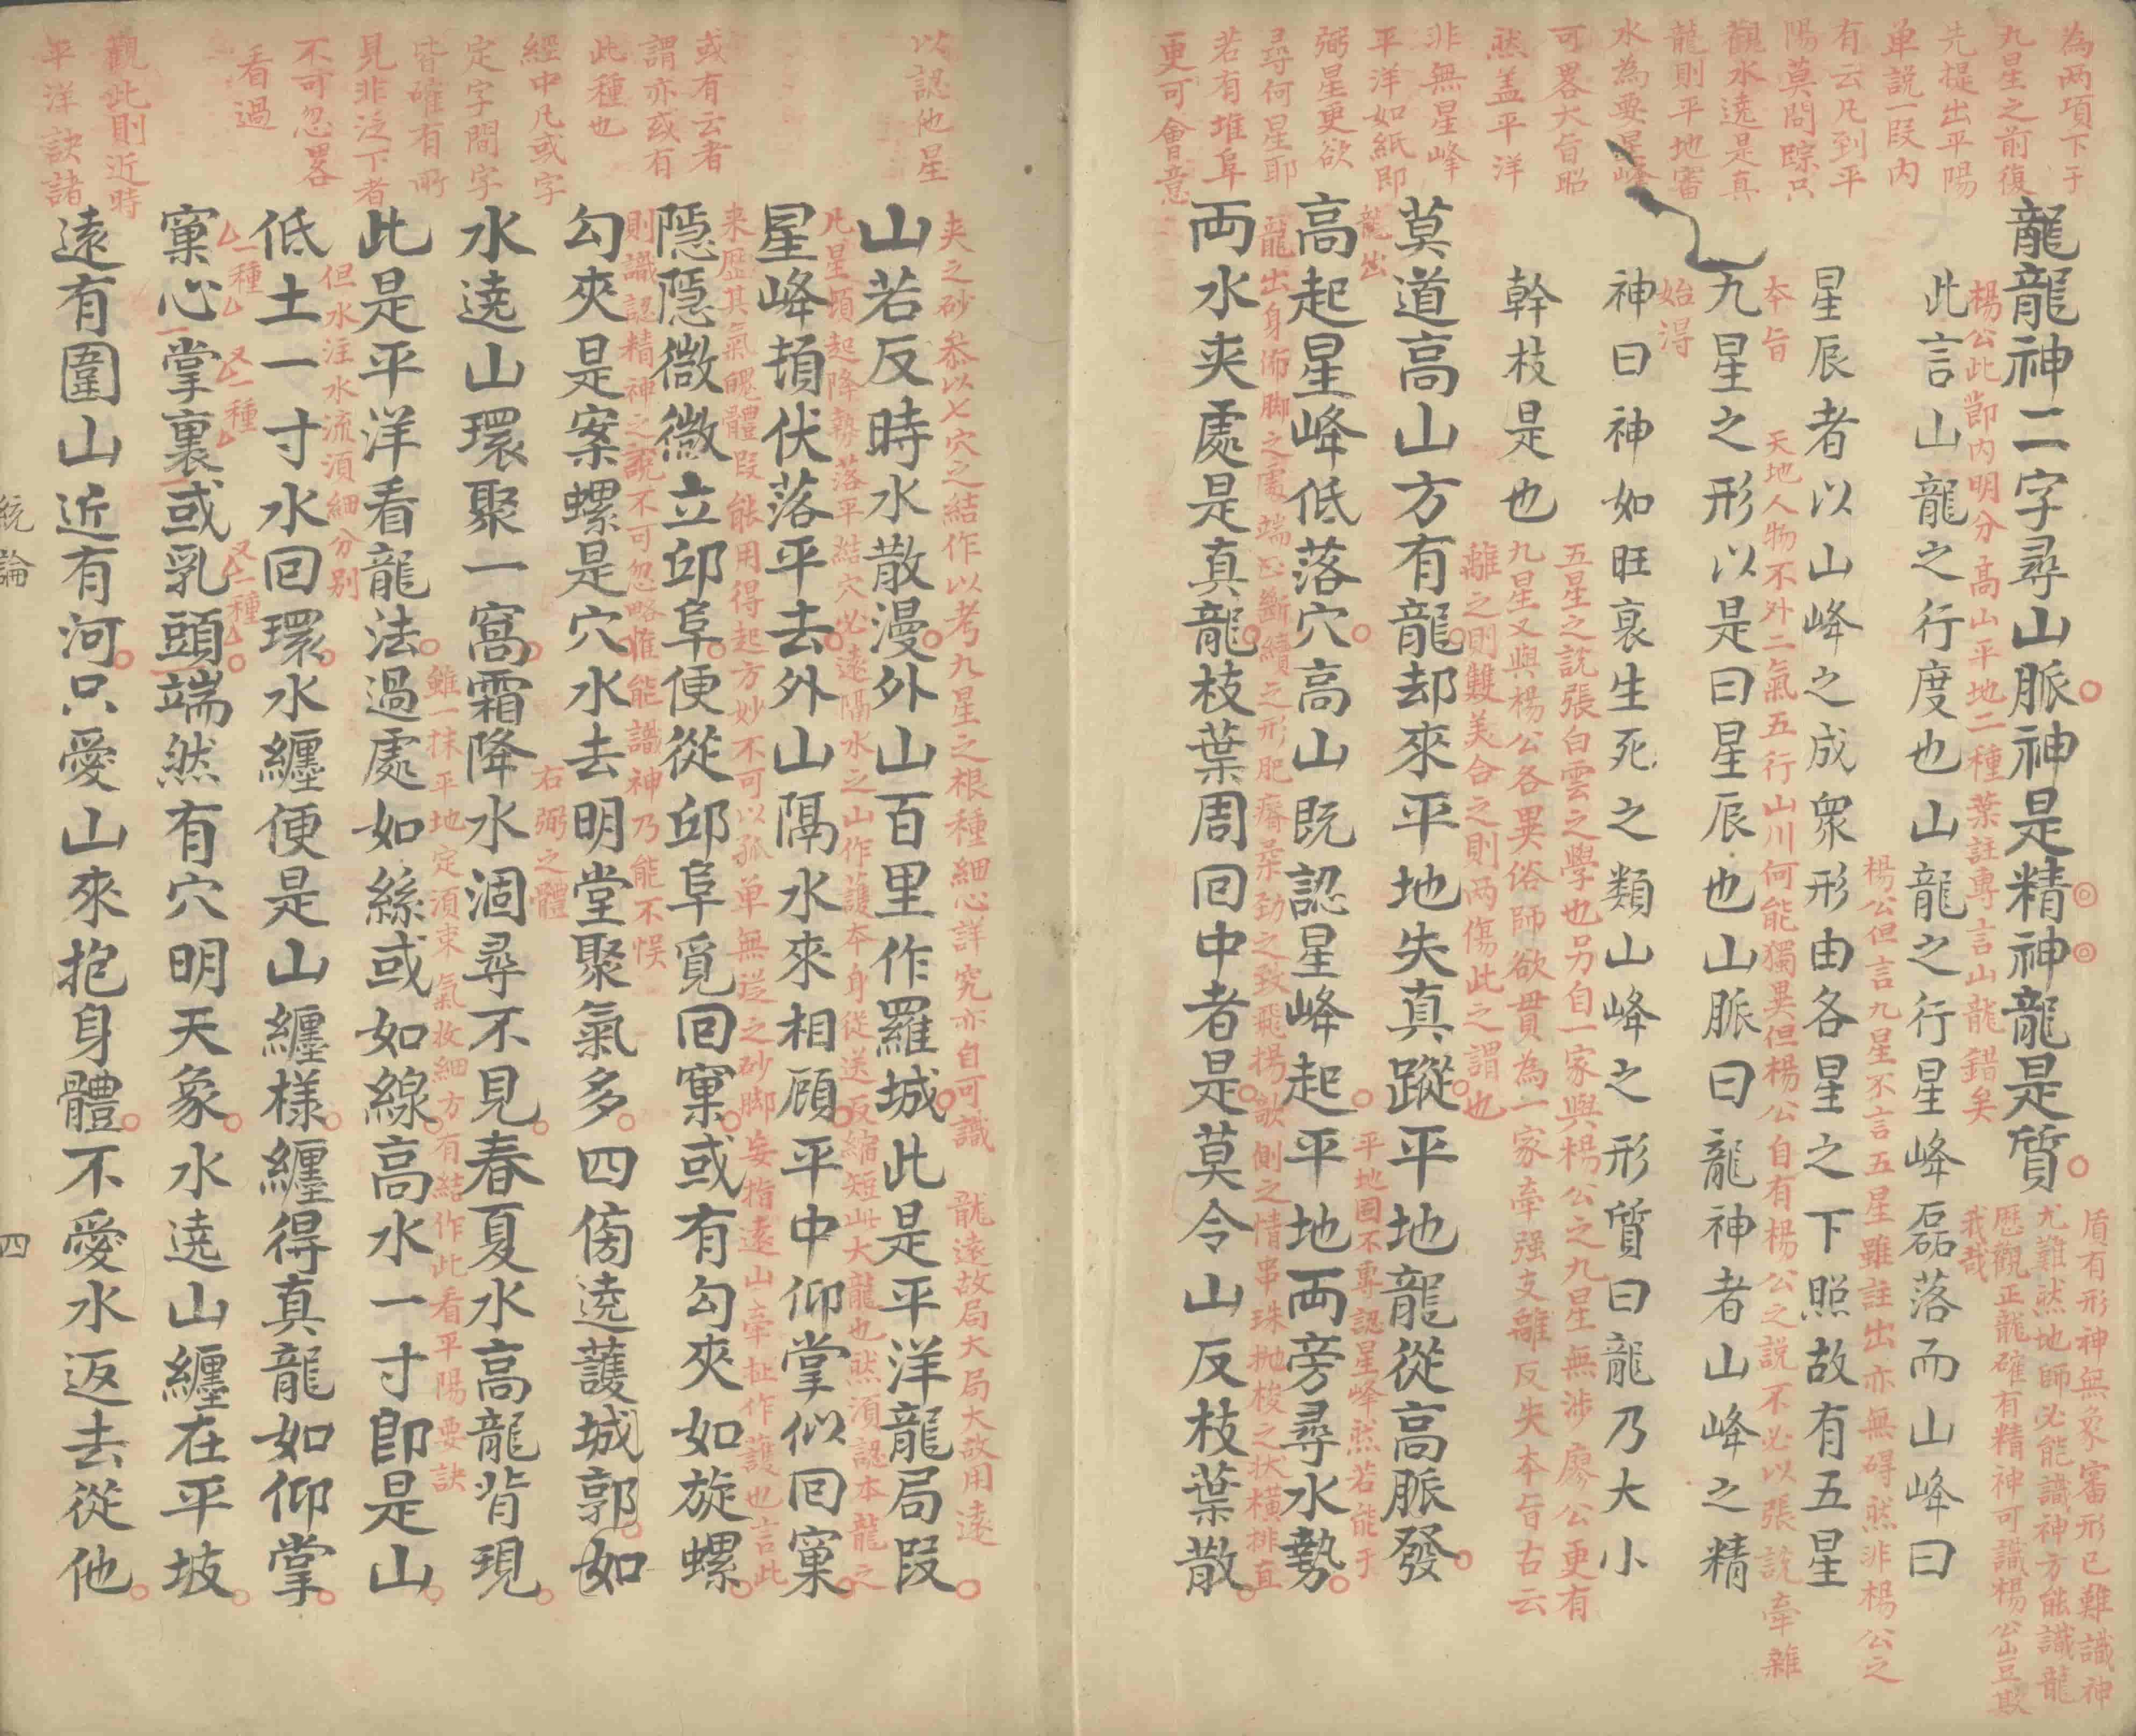 為兩項下于
九星之前復
先提出平陽
单説一叚内
有云凡到平
陽莫問踪只
觀水遶是真
龍則平地審
水為要星峰
可畧大旨昭
然盖平洋
非無星峰
平洋如紙即
弼星更欲
尋何星耶
若有堆阜
更可會意
龍龍神二字尋山脈神是精神龍是質
盾有形神無象審形已難識神
尤難然地師必能識神方能識龍
歷觀正龍確有精神可識楊公豈欺
我哉
楊公此節内明分高山平地二種葉註專言山龍錯矣
此言山龍之行度也山龍之行星峰磊落而山峰曰
楊公但言九星不言五星雖註出亦無碍然非楊公之
星辰者以山峰之成衆形由各星之下照故有五星
本旨
天地人物不外二氣五行山川何能獨異但楊公自有楊公之説不必以張說牽雜
九星之形以是曰星辰也山脈曰龍神者山峰之精
始得
神曰神神如旺衰生死之類山峰之形質曰龍乃大小
五星之說張白雲之學也另自一家與楊公之九星無涉廖公更有
九星又與楊公各異俗師欲貫為一家牽强支離反失本旨古云
幹枝是也
離之則雙美合之則兩傷此之謂也
莫道高山方有龍却來平地失真蹤平地龍從高脈發
龍出
平地固不專認星峰然若能于
高起星峰低落穴高山既認星峰起平地兩旁尋水勢
龍出身佈脚之處端正斷續之形肥瘠柔劲之致飛揚欹側之情串珠抛梭之状横排直
兩水夾處是真龍枝葉周回中者是莫令山反枝葉散
以認他星
或有云者
謂亦或有
此種也
經中凡或字
定字間字
皆確有所
見非泛下者
不可忽畧
看過
觀此則近時
平洋訣諸
夾之砂叅以七穴之結作以考九星之根種細心詳究亦自可識
龍遠故局大局大故用遠
山若反時水散漫外山百里作羅城此是平洋龍局叚
凡星頓起降勢落平結穴必遠隔水之山作護本身從送反縮短此大龍也然須認本龍之
星峰頓伏落平去外山隔水來相顧平中仰掌似回窠
来歴其氣魄體叚能用得起方妙不可以孤单無送之砂脚妄指遠山牽扯作護也言此
隱隱微微立邱阜便從邱阜覓回窠或有勾夾如旋螺
則識認精神之說不可忽略惟能識神乃能不悮
勾夾是案螺是穴水去明堂聚氣多四傍遶護城郭如
右弼之體
水遶山環聚一窩霜降水涸尋不見春夏水高龍背現
雖一抹平地定須束氣收細方有結作此看平陽要訣
此是平洋看龍法過處如絲或如線高水一寸卽是山
但水注水流須細分别
低土一寸水回環水纏便是山纏樣纏得真龍如仰掌
一種
又一種
又一種
窠心掌裏或乳頭端然有穴明天象水遶山纏在平坡
遠有圍山近有河只愛山來抱身體不愛水返去從他
統論
四